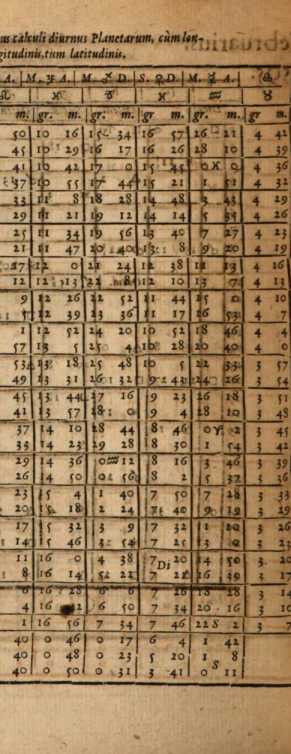 us calculi diurnus Planetarum, cùm lon-
gitudinis, tum latitudinis.
A. M. ♃ A. M. D. S. ♀ D. M. ☿ A.
♓ ♓ ♒ ♉
m. gr. m. gr. m. gr. m. gr. m. gr m.
50 10 16 15 34 16 57 26 21 4 42
45 10 29 16 17 16 26 28 10 4 39
41 10 42 17 0 15 45 0 ♓ 0 4 36
37 10 55 17 44 15 21 1 51 4 32
33 11 8 18 28 14 48 3 43 4 29
29 11 21 19 12 14 14 5 35 4 26
25 11 34 19 56 13 40 7 27 4 23
21 11 47 20 40 13 8 9 20 4 19
17 12 0 21 24 12 38 11 13 4 16
12 12 13 22 8 12 10 13 7 4 13
9 12 26 22 52 11 44 15 0 4 10
5 12 39 23 36 11 17 16 53 4 7
1 12 52 24 20 10 52 18 46 4 4
57 13 5 25 4 10 28 20 40 4 0
53 13 18 25 48 10 5 22 33 3 57
49 13 31 26 32 9 43 24 26 3 54
45 13 44 27 16 9 23 26 18 3 51
41 13 57 28 0 9 4 28 10 3 48
37 14 10 28 44 8 46 0 ♈ 2 3 45
33 14 23 29 28 8 30 1 54 3 42
29 14 36 0 ♒ 12 8 16 3 46 3 39
26 14 50 0 56 8 2 5 37 3 36
23 15 4 1 40 7 50 7 28 3 33
20 15 18 2 24 7 40 9 19 3 29
17 15 32 3 9 7 32 1 10 3 26
14 15 46 3 54 7 25 3 0 3 23
11 16 0 4 38 7 Di 20 14 50 3 20
8 16 14 5 22 7 21 16 39 3 17
6 16 28 6 6 7 26 18 28 3 14
4 16 42 6 50 7 34 20 16 3 10
1 16 56 7 34 7 46 22 S 2 3 7
40 0 46 0 17 6 4 1 42
40 0 48 0 23 5 20 1 8
40 0 50 0 31 3 41 0 S 11